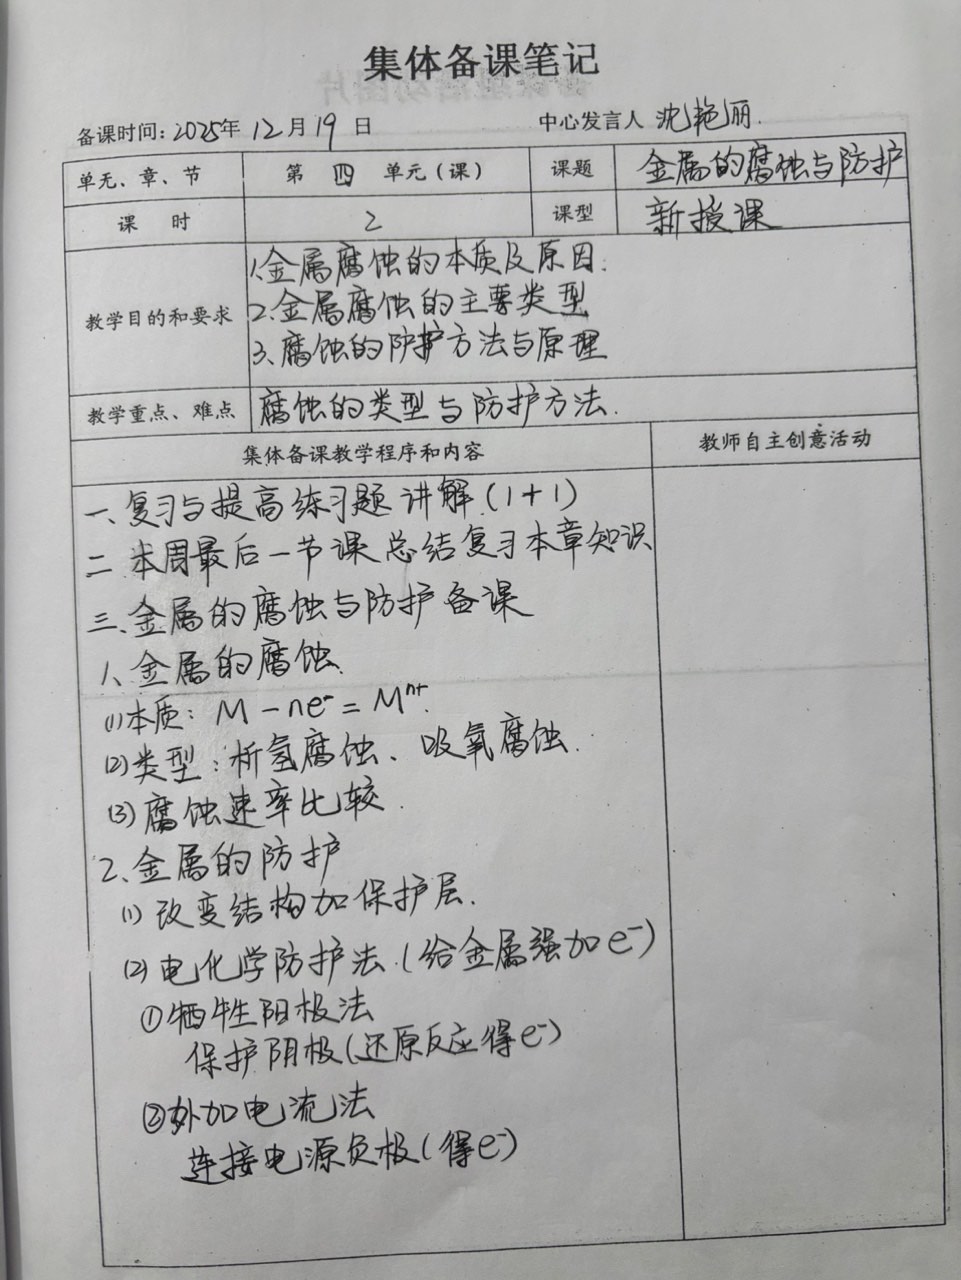 集体备课笔记
备课时间：2025年 12月 19 日 中心发言人 沈艳丽.
单元、章、节 第 四 单元（课） 课题 金属的腐蚀与防护
课 时 2 课型 新授课
教学目的和要求
1.金属腐蚀的本质及原因.
2.金属腐蚀的主要类型
3、腐蚀的防护方法与原理
教学重点、难点 腐蚀的类型与防护方法.
集体备课教学程序和内容 教师自主创意活动
一、复习与提高练习题讲解(1+1)
二 本周最后一节课总结复习本章知识
三、金属的腐蚀与防护备课
1、金属的腐蚀.
(1)本质: M - ne⁻ = Mⁿ⁺.
(2)类型: 析氢腐蚀、吸氧腐蚀.
(3)腐蚀速率比较.
2、金属的防护
(1) 改变结构加保护层.
(2) 电化学防护法.(给金属强加e⁻)
①牺牲阳极法
保护阴极(还原反应得e⁻)
②外加电流法
连接电源负极(得e⁻)